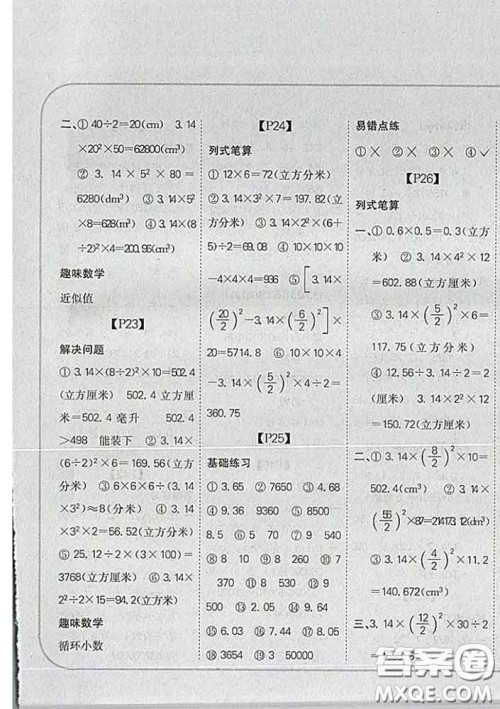 二、① 40÷2=20(cm)  3.14
×20²×50=62800(cm³)
② 3.14×5²×80=
6280(dm³)  ③ 3.14×5²
×8=628(m³)  ④ 3.14×(8
÷2)²×4=200.96(cm³)
趣味数学
近似值
【P23】
解决问题
① 3.14×(8÷2)²×10=502.4
(立方厘米)  502.4立方厘
米=502.4毫升  502.4
>498  能装下  ② 3.14×
(6÷2)²×6=169.56(立方
分米)  ③ 6×6×6÷(3.14
×3²)≈8(分米)  ④ 3.14
×3²×2=56.52(立方分米)
⑤ 25.12÷2×(3×100)=
3768(立方分米)  ⑥ 3.14×
2²÷2×15=94.2(立方米)
趣味数学
循环小数
【P24】
列式笔算
① 12×6=72(立方分米)
② 3.14×3²×7=197.82(立
方分米)  ③ 3.14×2²×(6+
5)÷2=69.08(立方
分米)  ④ 10×10×10
-4×4×4=936  ⑤ [3.14×
(20/2)²-3.14×(6/2)²]×
20=5714.8  ⑥ 10×10×4
-3.14×(5/2)²×4÷2=
360.75
【P25】
基础练习
① 3.65  ② 7650  ③ 4.68
④ 9.36  9360  ⑤ 8550
⑥ 8.4  ⑦ 5  80  ⑨ 540
⑧ 8  10  ⑨ 8  260  ⑩ 7
370  ⑪ 530  ⑫ 530
⑬ 0.49  ⑭ 9  380
⑮ 6.03  ⑯ 7.5  ⑰ 5.09
⑱ 3654  ⑲ 3  50000
易错点练
① ×  ② ×  ③ ×  ④ ✓
【P26】
列式笔算
一、① 0.6×0.5=0.3(立方
米)  ② 3.14×4²×12=
602.88(立方厘米)
③ 3.14×(5/2)²×6=
117.75(立方分米)
④ 12.56÷3.14÷2=2(厘
米)  3.14×2²×12=
150.72(立方厘米)
二、① 3.14×(8/2)²×10=
502.4(cm³)  ② 3.14×
(56/2)²×87=214173.12(cm³)
③ 3.14×(4/2)²×11.2=
140.672(cm³)
三、3.14×(12/2)²×30÷2
答案圈
MXQE.COM